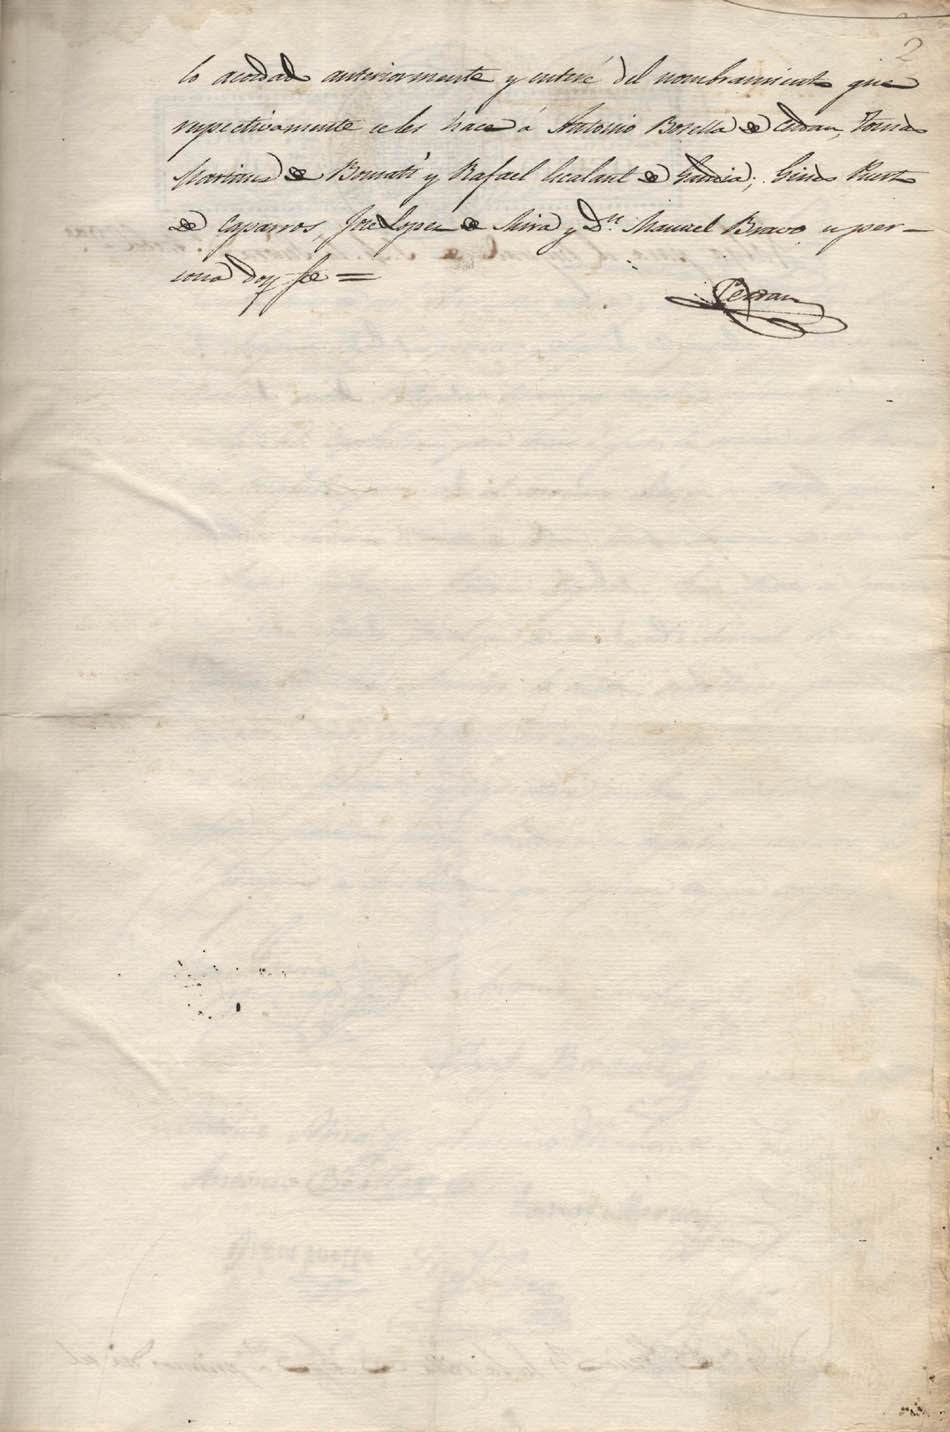 2
lo acordado anteriormente y enteré del nombramiento que
respectivamente se les hace á Antonio Botella de Cerdan, Tomas
Martinez de Bernabé y Rafael Escalant de Garcia; Gines Puerto
de Caparros, Jose Lopez de Mira y Dn. Manuel Bravo, en per-
sona doy fe =
Cerdan